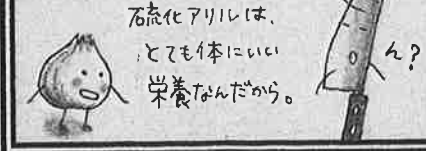 硫化アリルは、
とても体にいい
栄養なんだから。
ん?